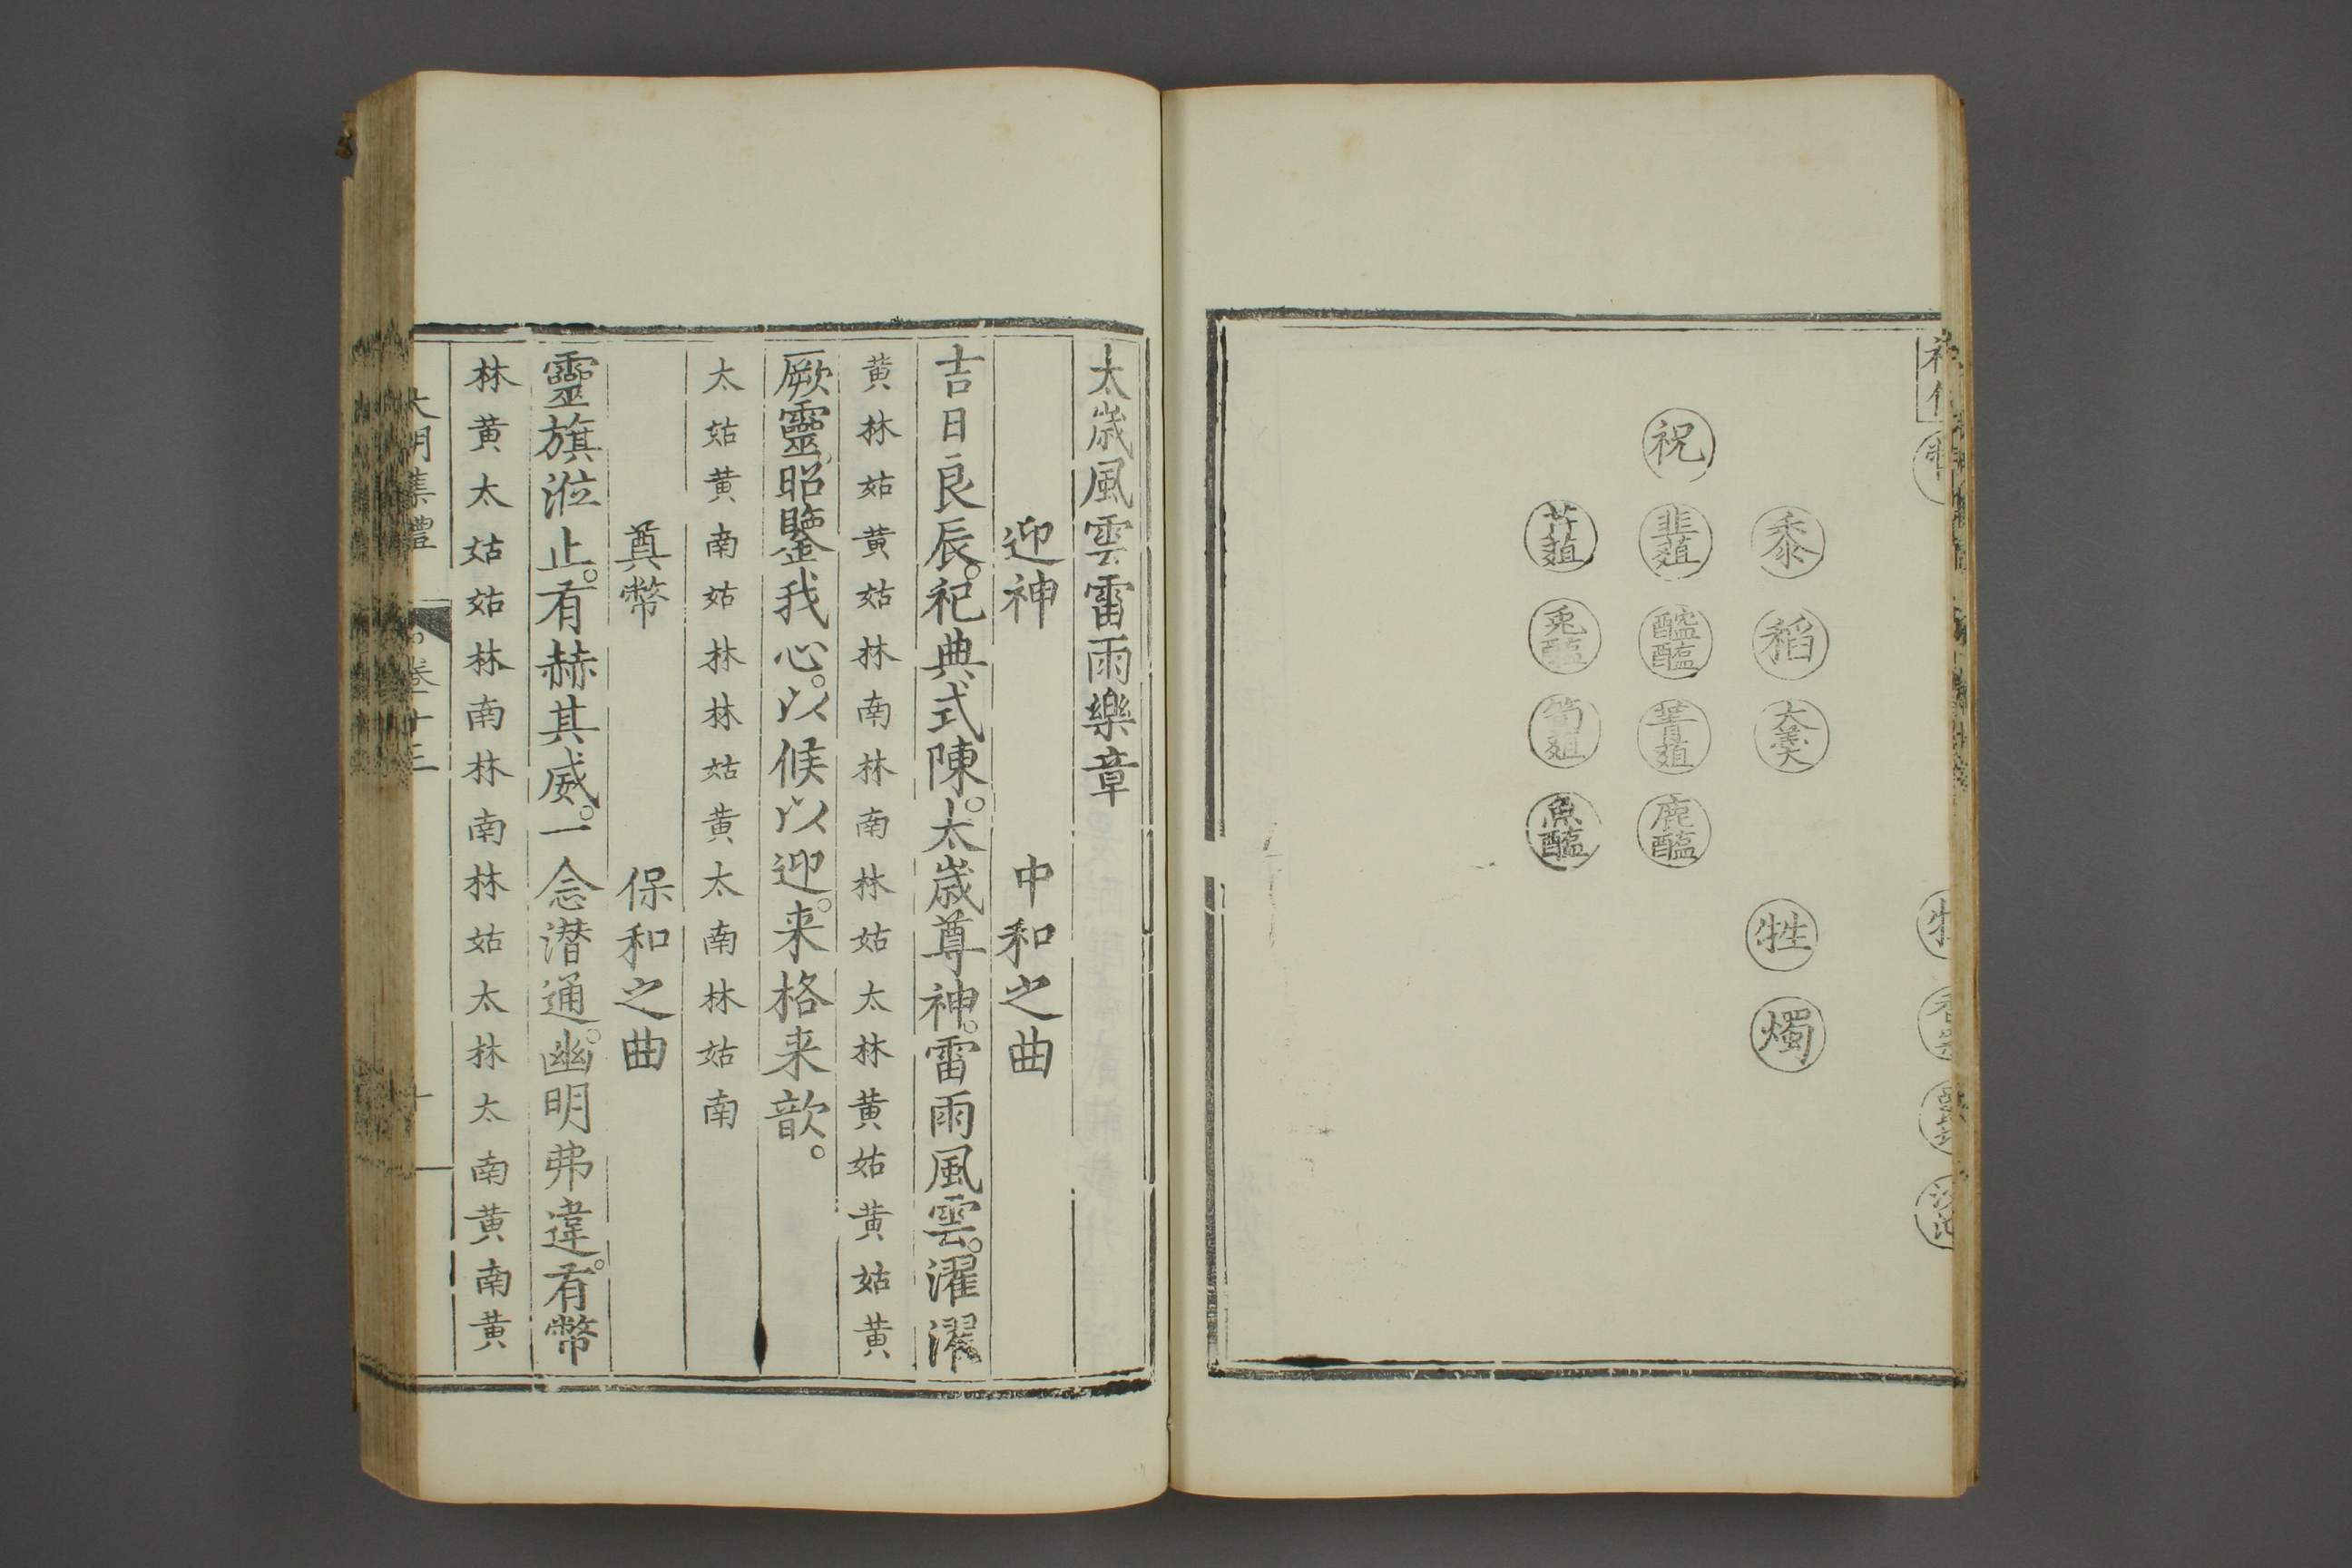 祝
黍
韭菹
芹菹
稻
醓醢
兎醢
大羹
菁菹
筍菹
鹿醢
魚醢
牲
燭
太歳風雲雷雨樂章
迎神 中和之曲
吉日良辰。祀典式陳。太歳尊神。雷雨風雲。濯濯
黄林姑黄姑林南林南林姑太林黄姑黄姑黄
厥靈。昭鑒我心。以候以迎。来格来歆。
太姑黄南姑林林姑黄太南林姑南
奠幣 保和之曲
靈旗涖止。有赫其威。一念潜通。幽明弗違。有幣
林黄太姑姑林南林南林姑太林太南黄南黄
大明集禮 卷十三 十